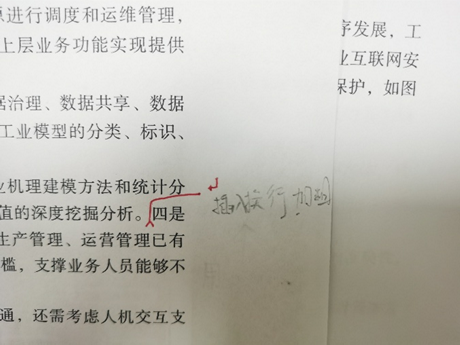 源进行调度和运维管理，
上层业务功能实现提供
据治理、数据共享、数据
工业模型的分类、标识、
业机理建模方法和统计分
值的深度挖掘分析。四是
生产管理、运营管理已有
槛，支撑业务人员能够不
通，还需考虑人机交互支
插入换行
序发展，工
业互联网安
保护，如图